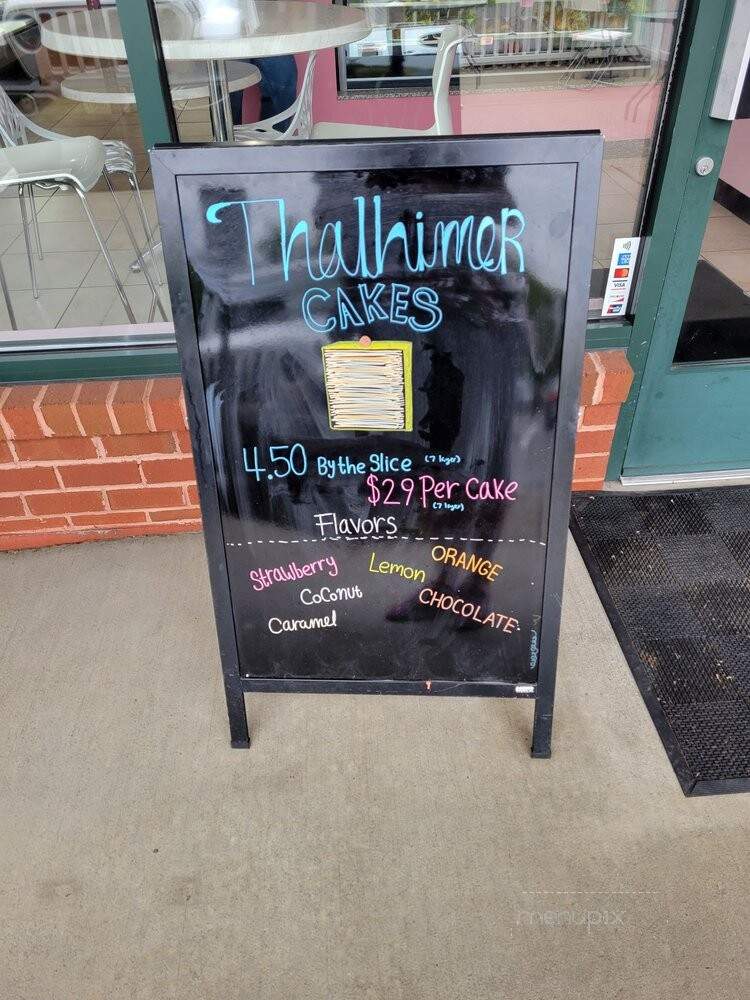 Thalhimer
CAKES
4.50 By the Slice (7 layer)
$29 Per Cake
(7 layer)
Flavors
Strawberry Lemon ORANGE
CoConut CHOCOLATE
Caramel
VISA
menupix